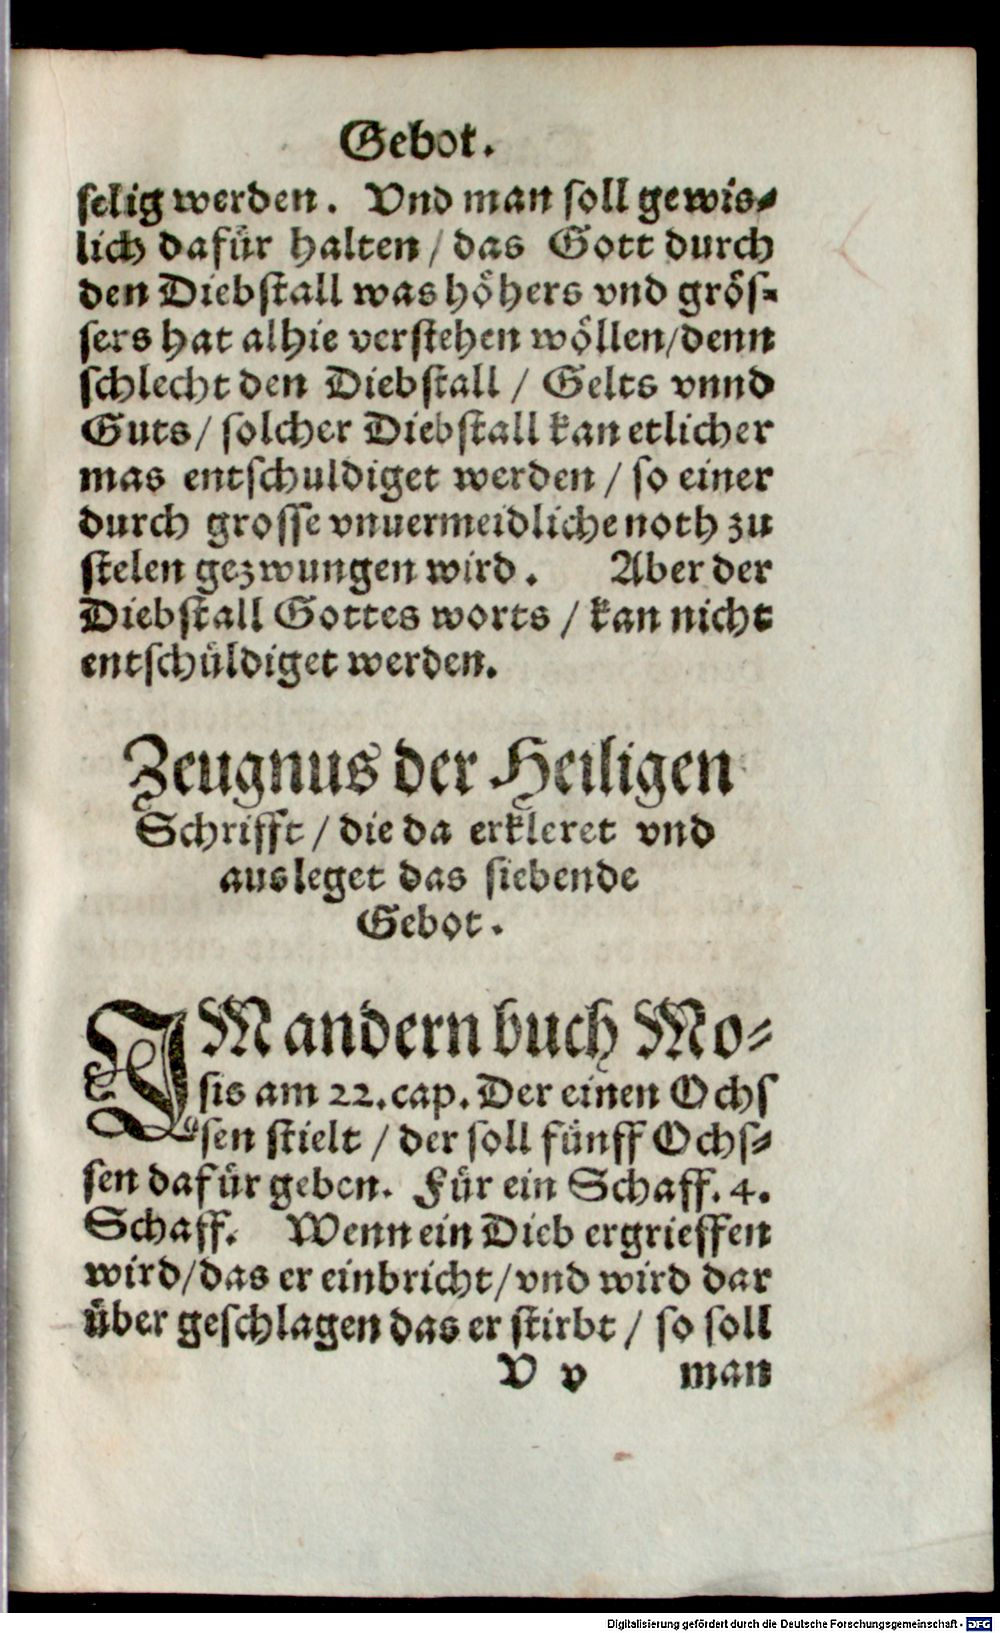 Gebot.
selig werden. Vnd man soll gewis-
lich dafür halten / das Gott durch
den Diebstall was höhers vnd grös-
sers hat alhie verstehen wöllen/denn
schlecht den Diebstall / Gelts vnnd
Guts/ solcher Diebstall kan etlicher
mas entschuldiget werden / so einer
durch grosse vnuermeidliche noth zu
stelen gezwungen wird. Aber der
Diebstall Gottes worts / kan nicht
entschüldiget werden.
Zeugnus der Heiligen
Schrifft / die da erkleret vnd
ausleget das siebende
Gebot.
IM andern buch Mo-
sis am 22. cap. Der einen Ochs
sen stielt / der soll fünff Ochs-
sen dafür geben. Für ein Schaff. 4.
Schaff. Wenn ein Dieb ergrieffen
wird/das er einbricht/vnd wird dar
über geschlagen das er stirbt / so soll
V v man
Digitalisierung gefördert durch die Deutsche Forschungsgemeinschaft - DFG